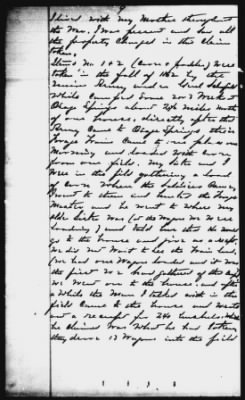 I lived with my Mother throughout
the War, I was present and saw all
the property charged in the Claim
taken,
Items No 1 & 2 (Corn & fodder) were
taken in the fall of 1862 by the
Union Army under Genl Schofield
while Camped some 2 or 3 weeks at
Osage Springs about 2½ miles south
of our house, directly after the
Army Came to Osage Springs, their
forage train Came to our place one
Morning and loaded with Corn
from our field, My sister and I
were in the field gathering a load
of Corn where the soldiers Came,
I went to them and the forage
Master and he went to where my
older sister was (at the wagon we were
loading) and told her that he would
go to the house and give a receipt,
We did not want to the
(we had one wagon loaded and it was
the first we had gathered of the
We went on to the house, and after
a while the Man I talked with in the
field Came to the house and wrote
out a receipt for 240 bushels, which
he claimed was what he had taken,
they drove 13 wagons into the field